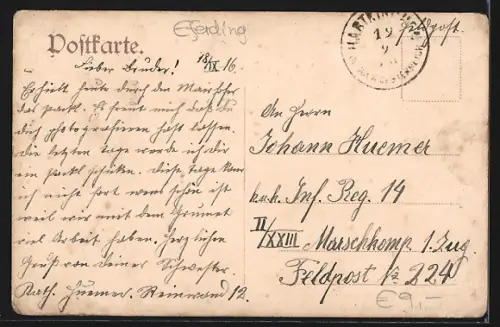 Eferding
Postkarte.
Feldpost.
HARTKIRCHEN
19
9
18/IX 16.
Lieber Bruder!
Erhielt heute durch den
das Packl. Es freut mich daß du
dich photographieren hast lassen.
Die letzten Tage werde ich dir
ein Packl schicken. Diese Tage kann
ich nicht fort wenn schön ist
weil wir mit dem Grumet
viel Arbeit haben. Herzlichen
Gruß von deiner Schwester
Kath. Huemer. Reinwand 12.
An Herrn
Johann Huemer
k.u.k. Inf. Reg. 14
II/XXIII Marschkomp 1. Zug
Feldpost № 224
€9,-